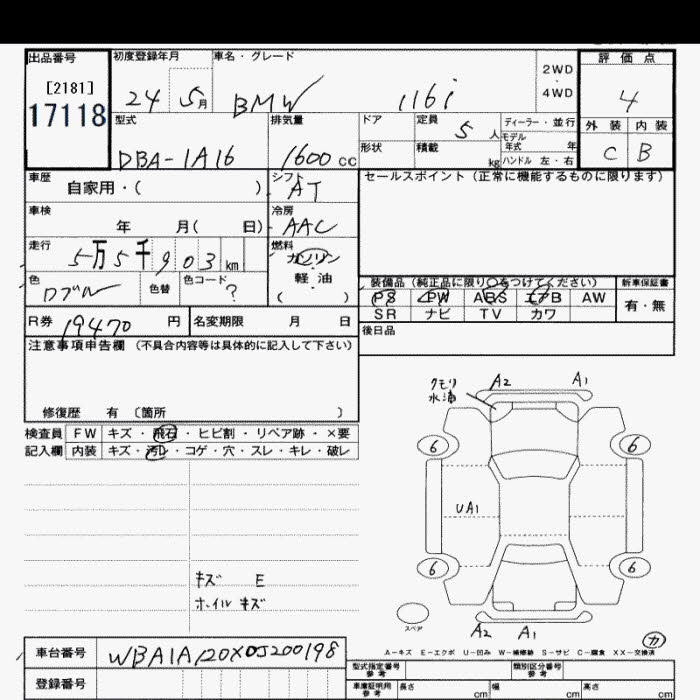 出品番号 初度登録年月 車名・グレード 2WD 評価点
[2181] 24 5月 BMW 116i ・
17118 4WD 4
型式 排気量 ドア 定員 5人 ディーラー・並行 外装 内装
モデル年式 年
DBA-1A16 1600cc 形状 積載 kg ハンドル 左・右 C B
車歴 自家用・( ) シフト AT セールスポイント(正常に機能するものに限ります)
車検 年 月( 日) 冷房 AAC
走行 5万5千903km 燃料 ガソリン
色 ロブル 色替 色コード ? 軽油
( )
装備品(純正品に限り〇をつけてください) 新車保証書
PS PW ABS エアB AW 有・無
SR ナビ TV カワ
R券 19470円 名変期限 月 日 後日品
注意事項申告欄(不具合内容等は具体的に記入して下さい)
修復歴 有〔箇所 〕
検査員 FW キズ・飛石・ヒビ割・リペア跡・×要
記入欄 内装 キズ・汚レ・コゲ・穴・スレ・キレ・破レ
クモリ A2 A1
6 6
UA1
6 6
キズ E
ホイルキズ
スペア
A2 A1
カ
A-キズ E-エクボ U-凹み W-補修跡 S-サビ C-腐食 XX-交換済
車台番号 WBA1A120X0J200198 型式指定番号 参考 類別区分番号 参考
登録番号 車庫証明用 参考 長さ cm 幅 cm 高さ cm